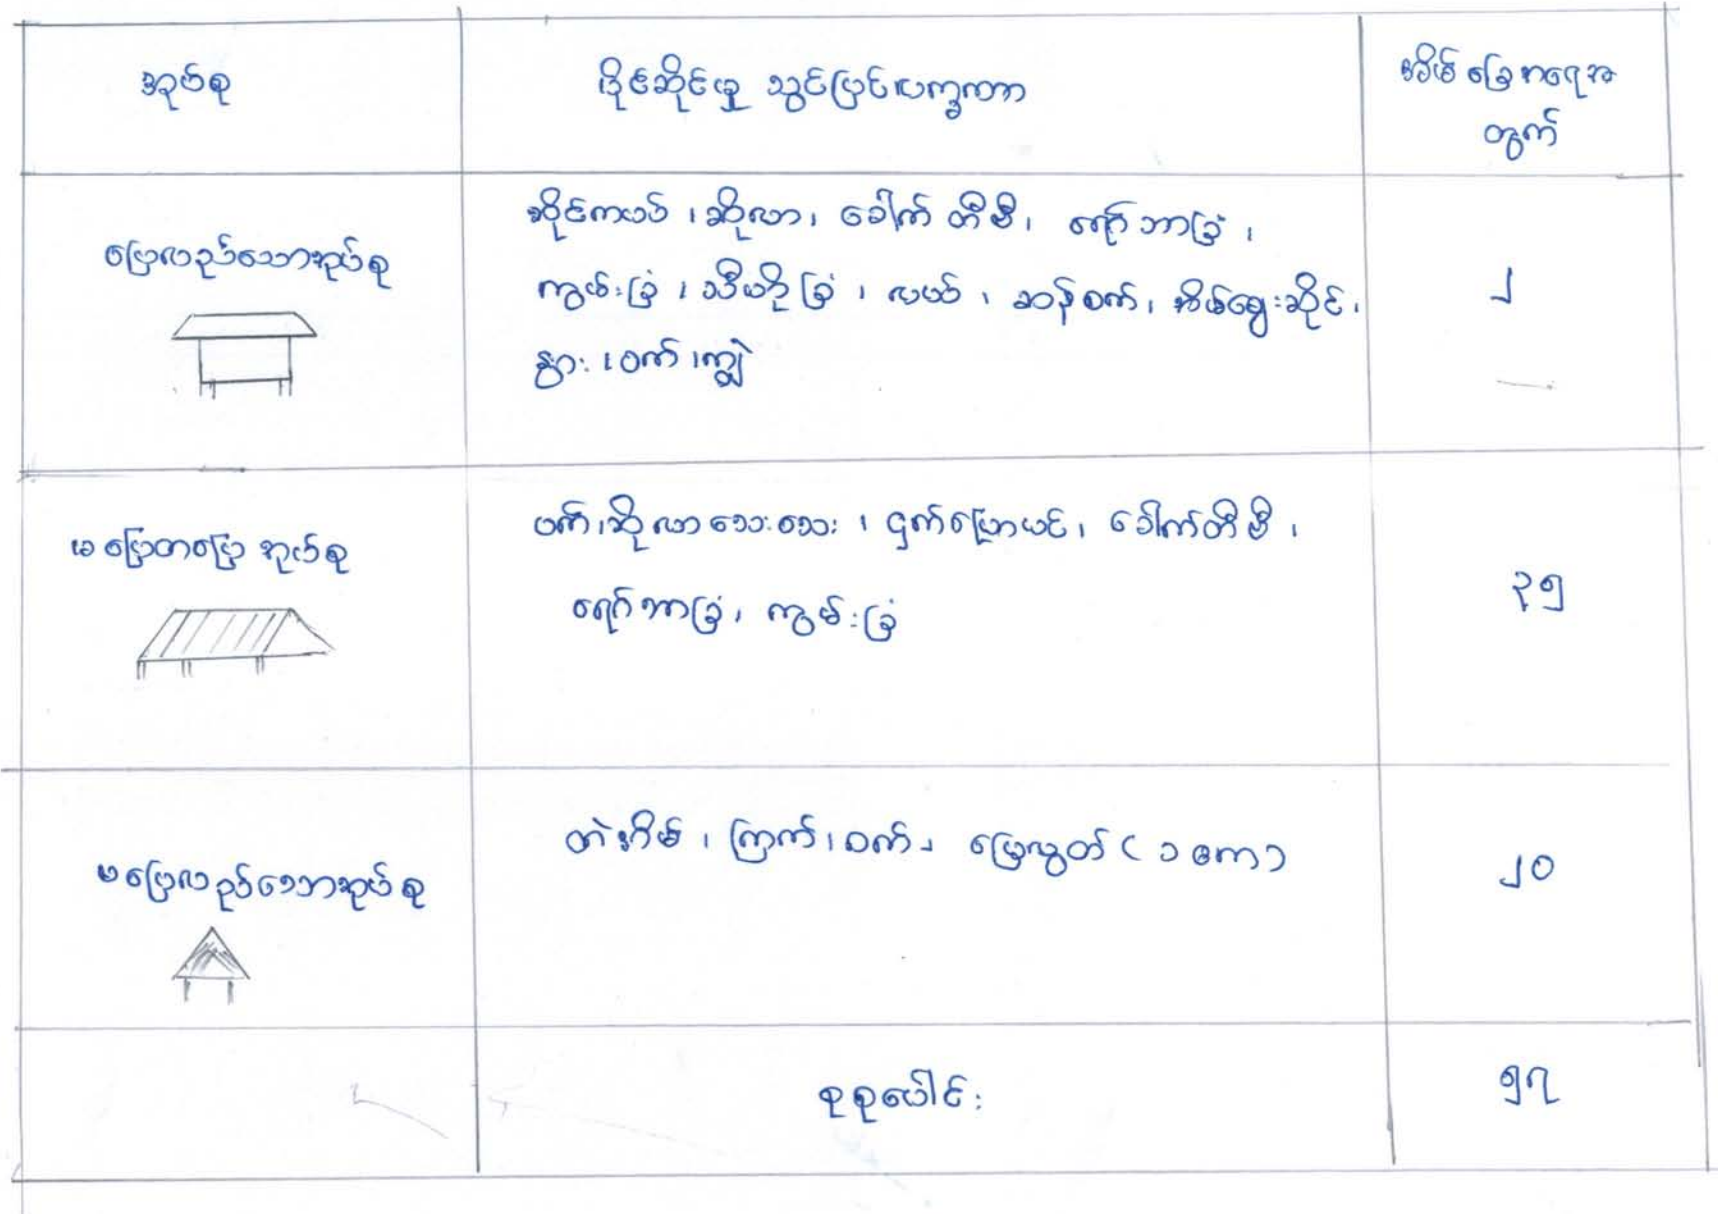 အုပ်စု
ပိုင်ဆိုင်မှု သွင်ပြင်လက္ခဏာ
အိမ်ခြေအရေအ
တွက်
ပြေလည်သောအုပ်စု
ဆိုင်ကယ်၊ ဆိုလာ၊ ခေါက် တီဗီ၊ ရော်ဘာခြံ၊
ကွမ်းခြံ၊ သီဟိုခြံ၊ လယ်၊ ဆန်စက်၊ အိမ်ဈေးဆိုင်၊
နွား၊ ဝက်၊ ကျွဲ
၂
မပြေတပြေ အုပ်စု
ဝက်၊ ဆိုလာသေးသေး၊ ငှက်ပြောပင်၊ ခေါက်တီဗီ၊
ရော်ဘာခြံ၊ ကွမ်းခြံ
၃၅
မပြေလည်သောအုပ်စု
တဲအိမ်၊ ကြက်၊ ဝက်၊ မြေလွတ် (၁ ဧက)
၂၀
စုစုပေါင်း
၅၇